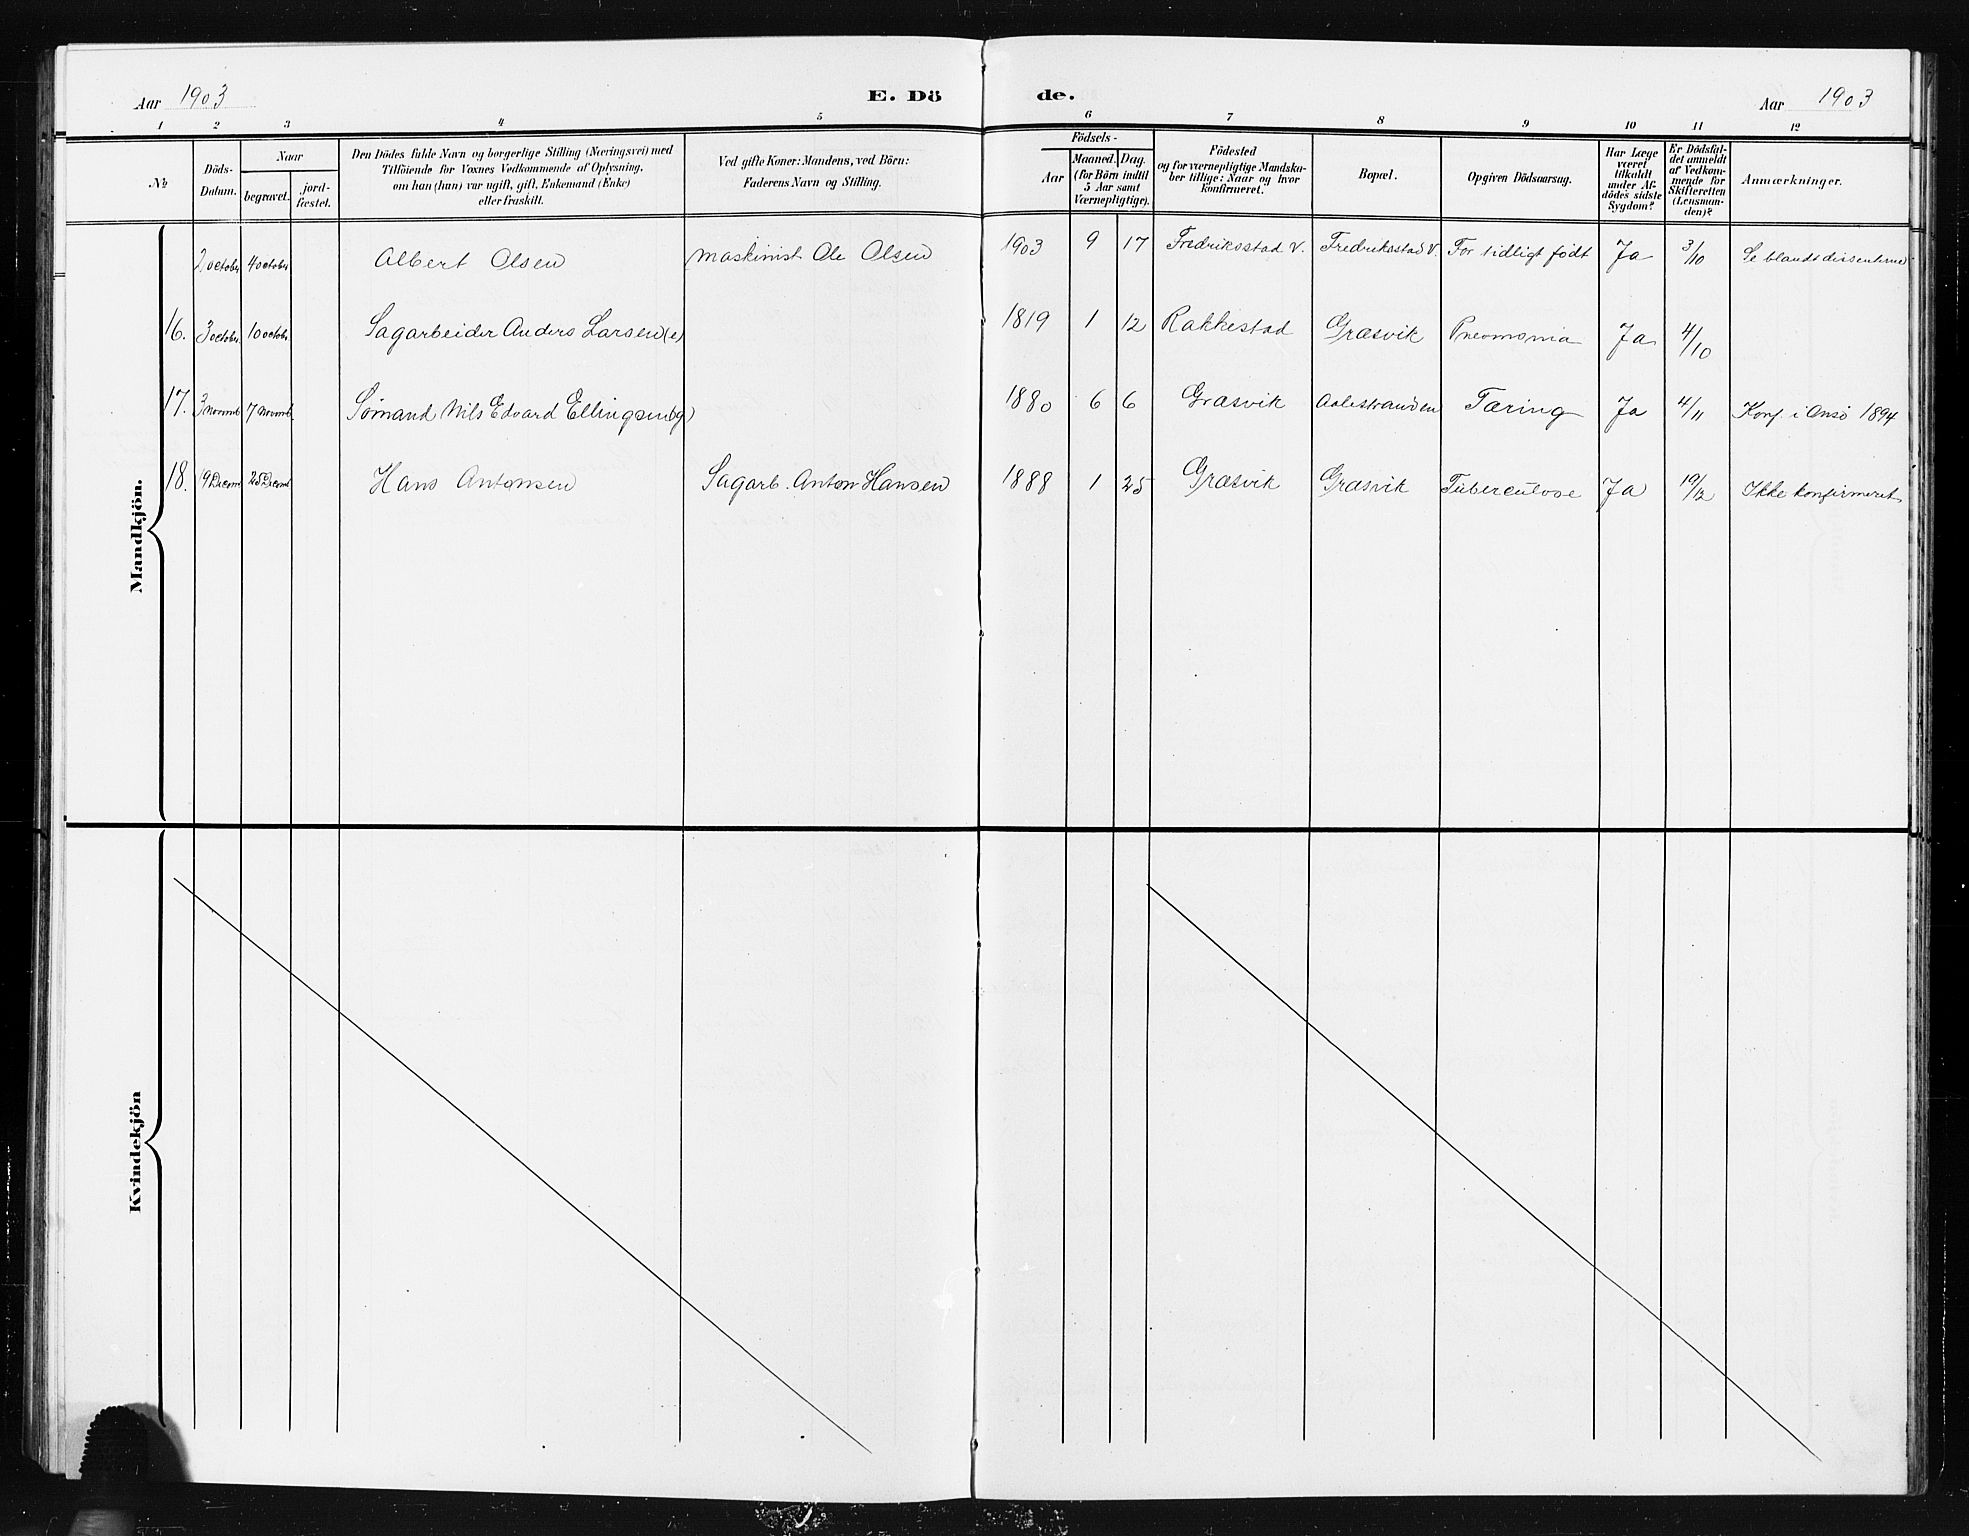 Aar 1903
E. Dö de.
Aar 1903
1 2 3 4 5 6 7 8 9 10 11 12
№
Döds-Datum.
Naar
begravet.
jord-fæstet.
Den Dödes fulde Navn og borgerlige Stilling (Næringsvei) med
Tilföiende for Voxnes Vedkommende af Oplysning,
om han (hun) var ugift, gift, Enkemand (Enke)
eller fraskilt.
Ved gifte Koner: Mandens, ved Börn:
Faderens Navn og Stilling.
Födsels-
Aar
Maaned. Dag.
(for Börn indtil
5 Aar samt
Værnepligtige).
Födested
og for værnepligtige Mandska-
ber tillige: Naar og hvor
konfirmeret.
Bopæl.
Opgiven Dödsaarsag.
Har Læge
været
tilkaldt
under Af-
dödes sidste
Sygdom?
Er Dödsfal-
det anmeldt
af Vedkom-
mende for
Skifteretten
(Lensman-
den)?
Anmærkninger.
Mandkjön.
2 octobr. 4 octobr. Albert Olsen Maskinist Ole Olsen 1903 9 17 Fredriksstad V. Fredriksstad V. For tidligt født Ja 3/10 Se blandt dissenterne
16. 3 octobr. 10 octobr. Sagarbeider Anders Larsen (e) 1819 1 12 Rakkestad Græsvik Pneomonia Ja 4/10
17. 3 novemb. 7 novemb. Sømand Nils Edvard Ellingsen (g) 1880 6 6 Græsvik Aalestranden Tæring Ja 4/11 Konf. i Onsø 1894
18. 19 Decemb. 25 Decemb. Hans Antonsen Sagarb. Anton Hansen 1888 1 25 Græsvik Græsvik Tuberculose Ja 19/12 Ikke konfirmeret
Kvindekjön